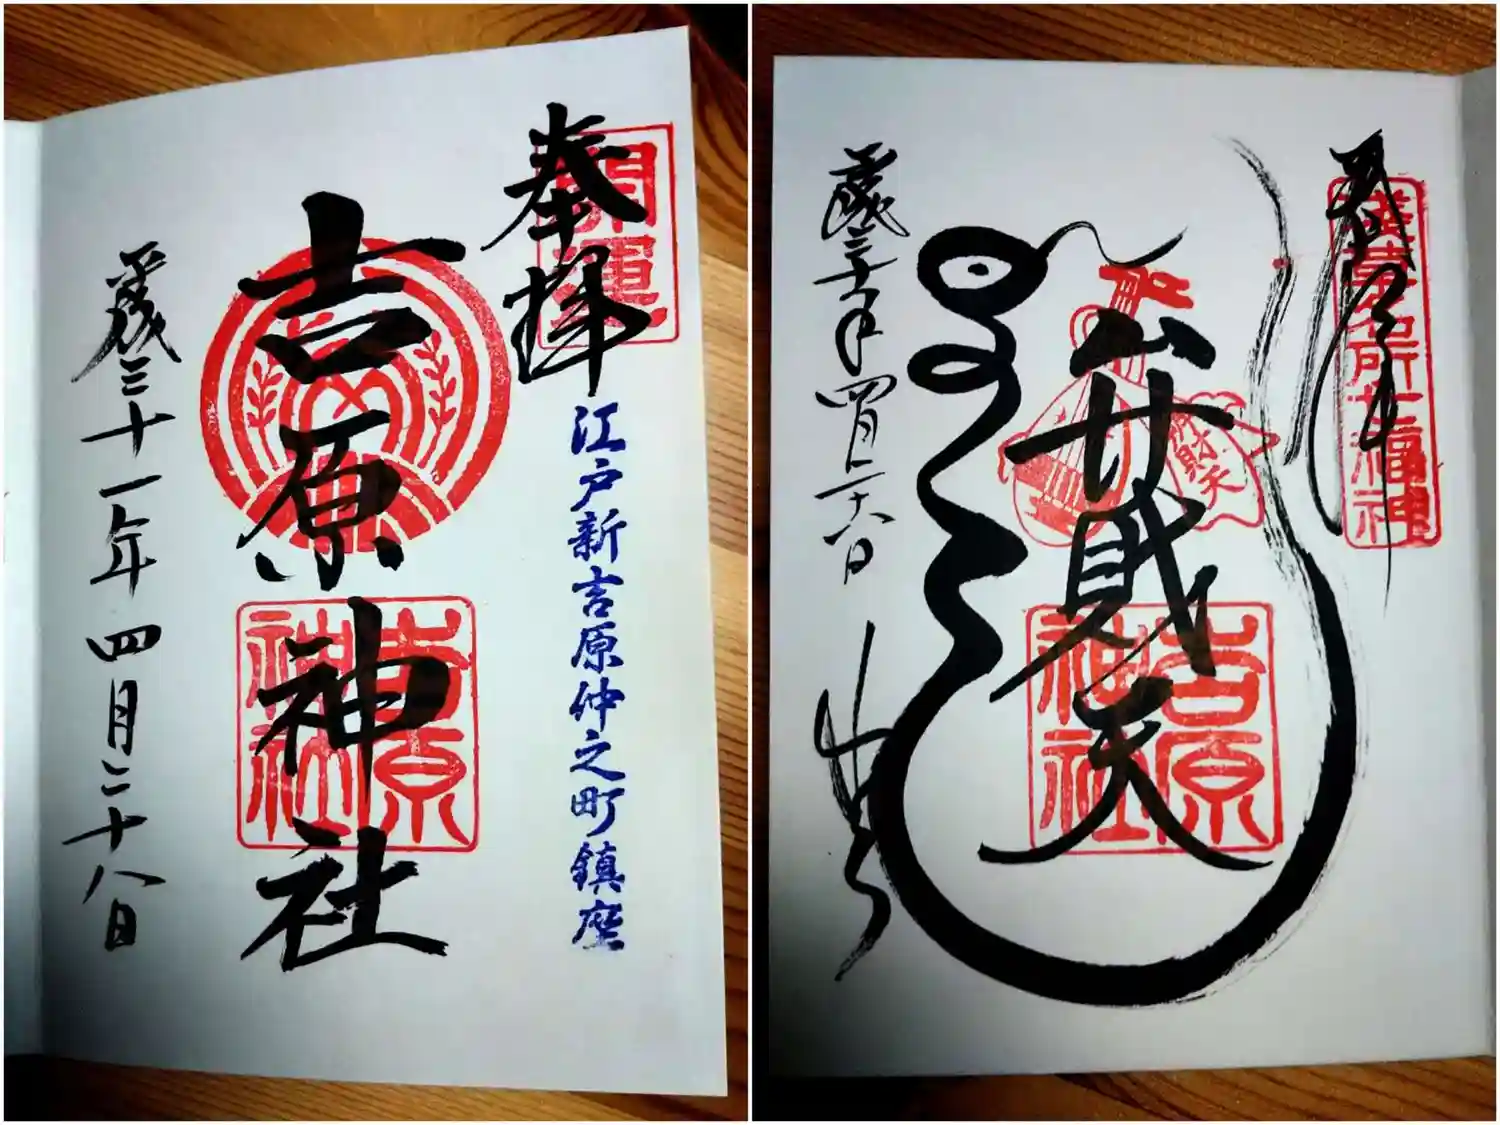 奉拝
開運
江戸新吉原仲之町鎮座
吉原神社
吉原神社
平成三十一年四月二十八日
浅草名所七福神
弁財天
財天
吉原神社
平成三十一年四月二十八日